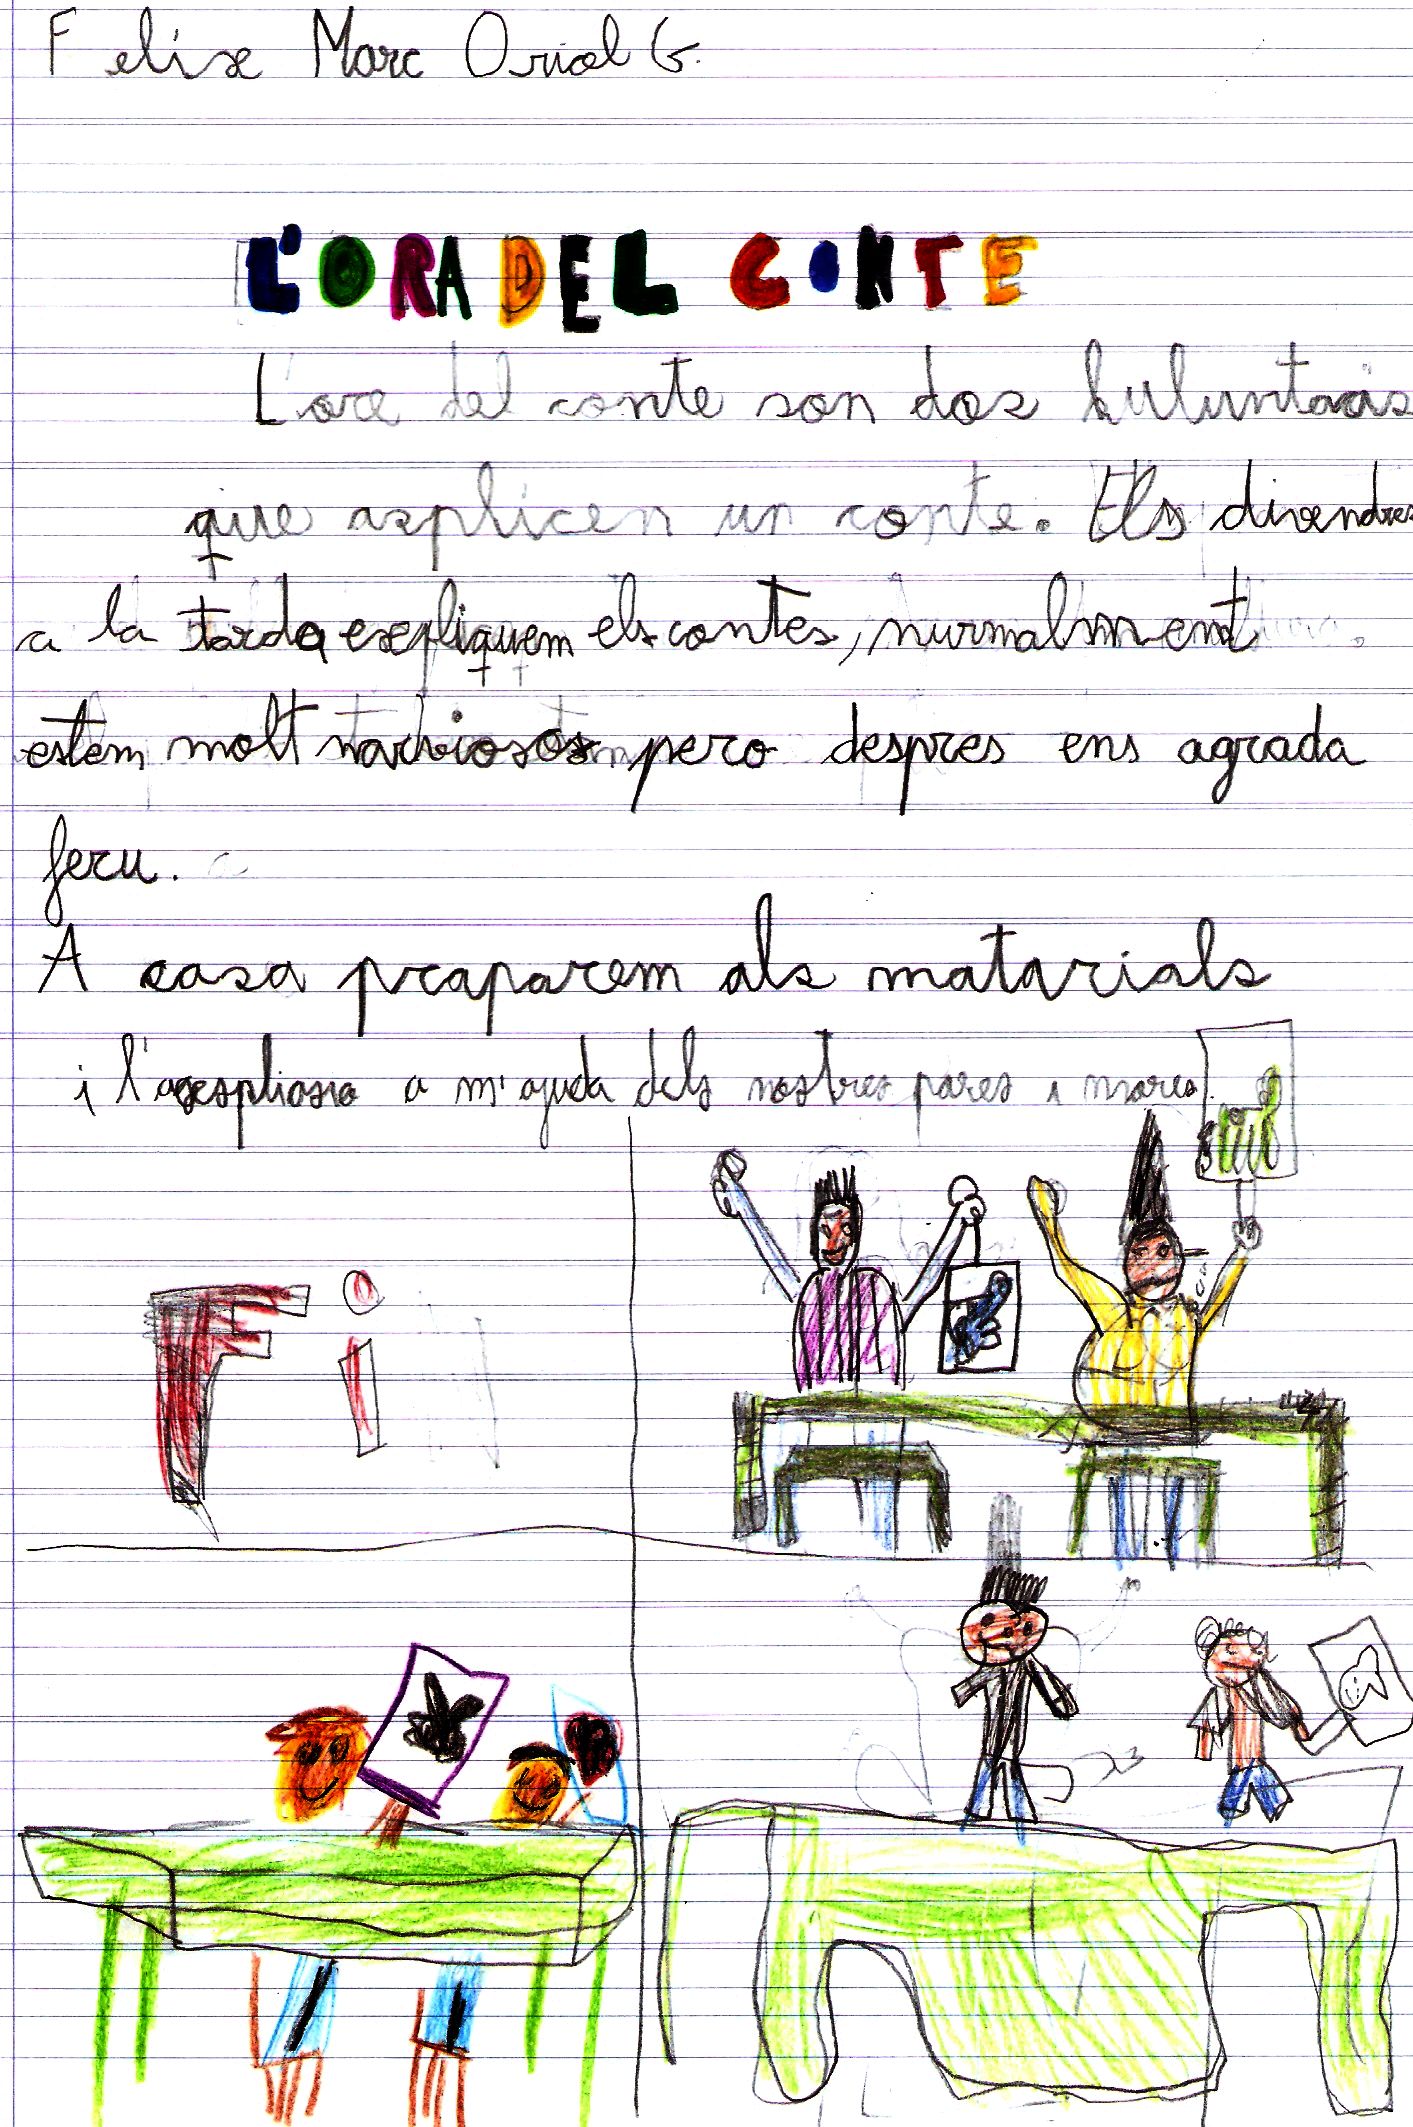 Felix Marc Oriol G.
L'ORA DEL CONTE
L'ora del conte son dos buluntaris
que asplicen un conte. Els divendres
a la tarda expliquem els contes, nurmalment
estem molt narbiosos pero despres ens agrada
feru.
A casa praparem als matarials
i l'aesplicsio a m'ajuda dels nostres pares i mares.
Fi